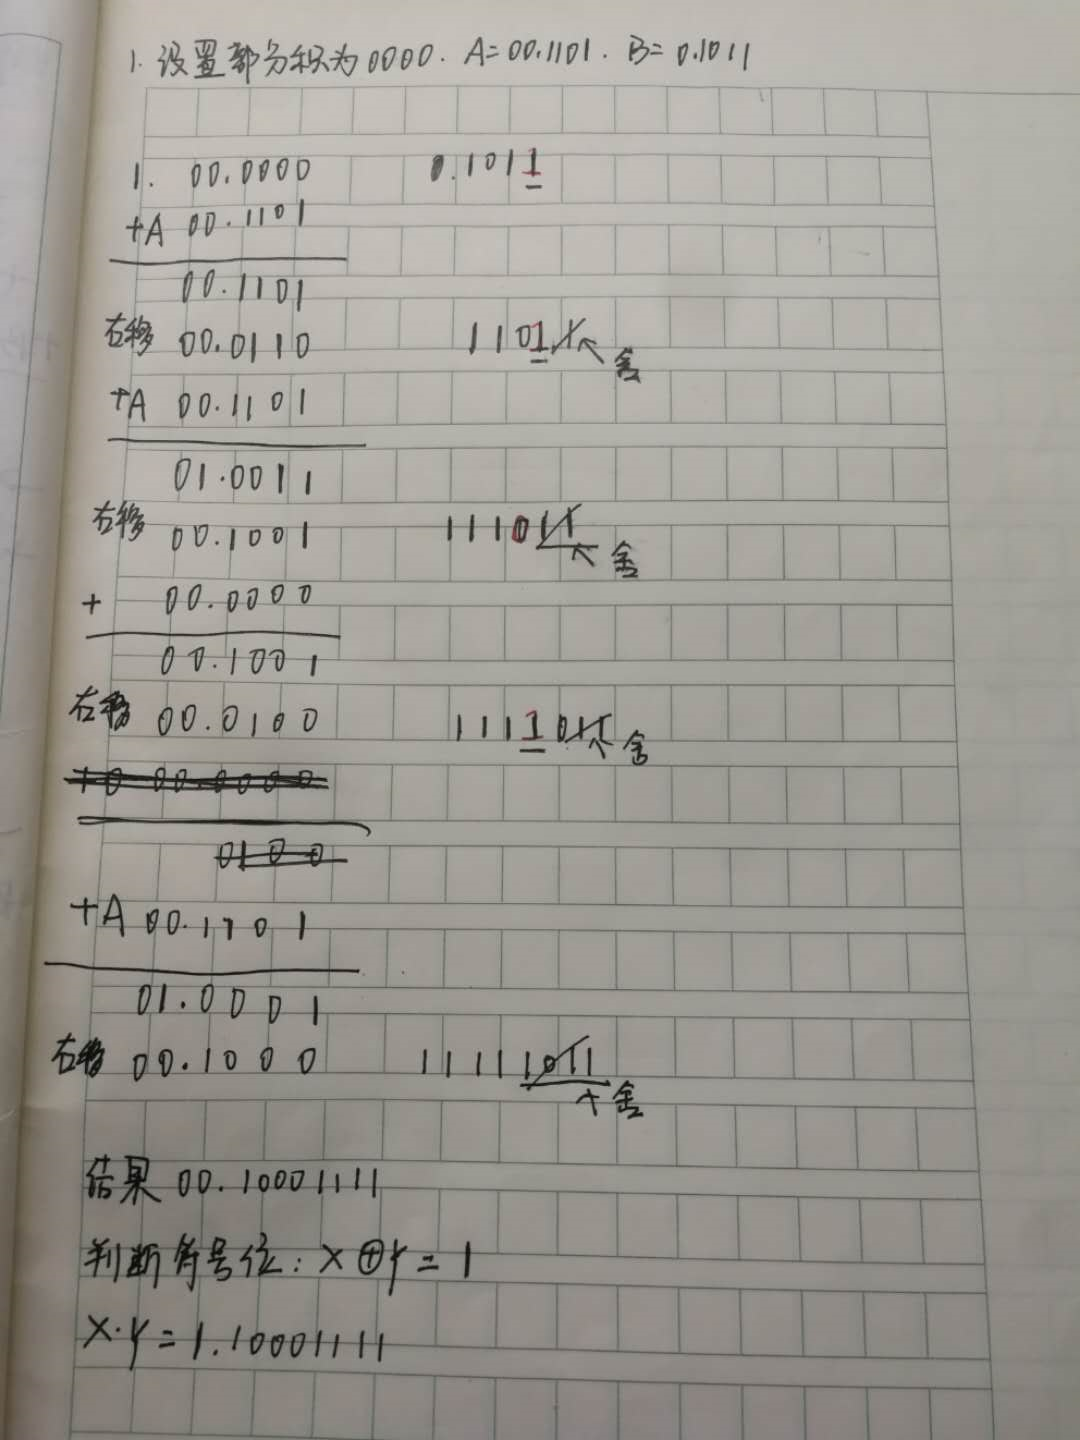 1. 设置部分积为0000. A=00.1101. B=0.1011
1. 00.0000 0.1011
+A 00.1101
00.1101
右移 00.0110 11011 舍
+A 00.1101
01.0011
右移 00.1001 111011 舍
+ 00.0000
00.1001
右移 00.0100 1111011 舍
+0 00.0000
0100
+A 00.1101
01.0001
右移 00.1000 11111011 舍
结果 00.10001111
判断符号位: x⊕y=1
x·y=1.10001111